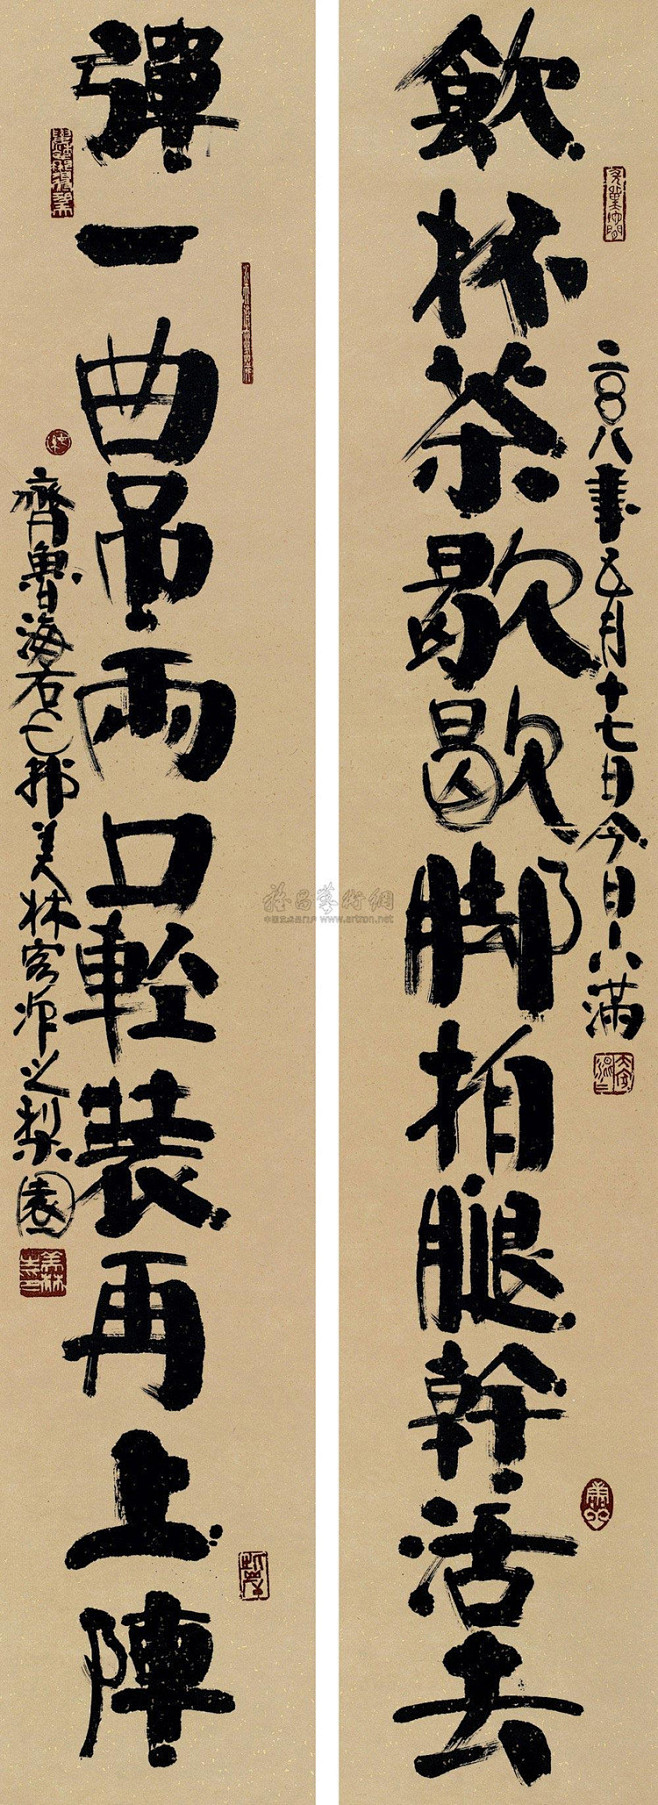 飲杯茶歇歇脚拍腿幹活去
二〇〇八年五月十七日今日小滿
彈一曲吊兩口輕裝再上陣
齊魯海右七韩美林客作之梨園
雅昌藝術網
www.artron.net